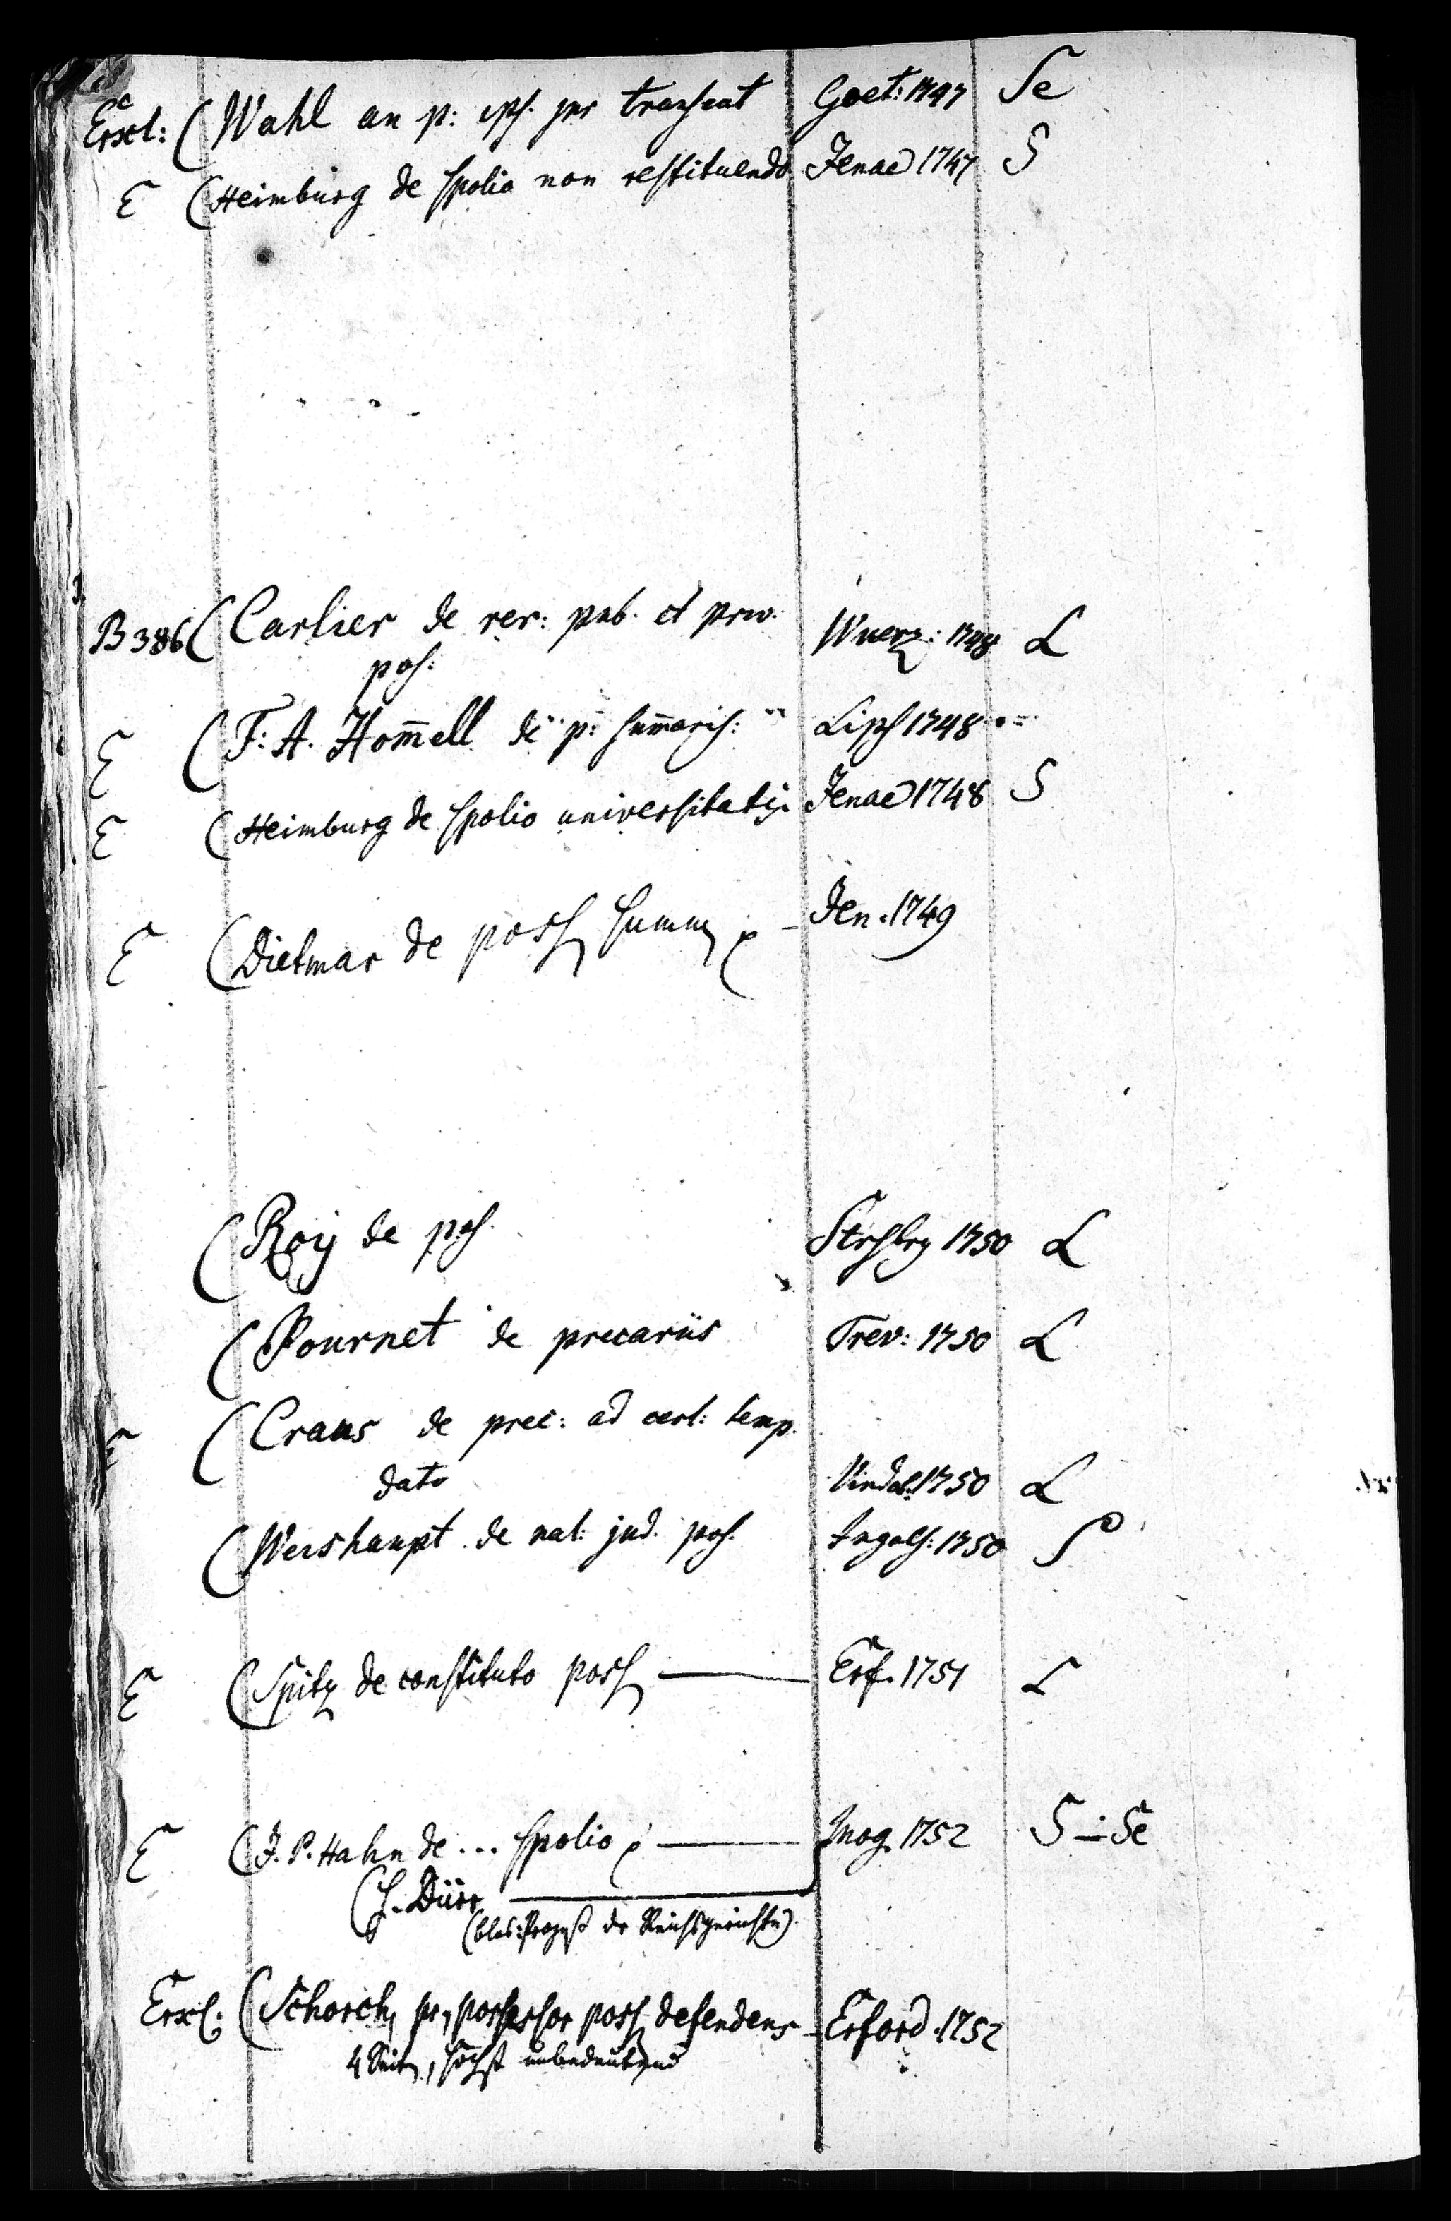 Erxl: ( Wahl an p: eps. jus transeat Goet: 1747 Se
E ( Heimburg de spolio non restituendo Jenae 1747 S
B 386 ( Carlier de rer: pub. et priv. Wuerz: 1748 L
pos:
E ( F. A. Hom̄ell de p: sum̄aris: Lips 1748
E ( Heimburg de spolio universitatis Jenae 1748 S
E ( Dietmar de poss. summ. Jen. 1749
( Roy de pos. Strsbrg 1750 L
( Pournet de precariis Trev: 1750 L
E ( Craus de prec: ad cert: temp.
dato Vindob. 1750 L
( Weishaupt de nat: jud. pos. Ingols: 1750 P
E ( Spitz de constituto poss. — Erf. 1751 L
E ( J. P. Hahn de ... spolio — Mog. 1752 S — Se
( S. Dürr —
(blos: Prozeß der Reichsgerichte).
Erxl. ( Schorch, pr, possessor poss. defendens – Erford. 1752
4 Seiten, höchst unbedeutend